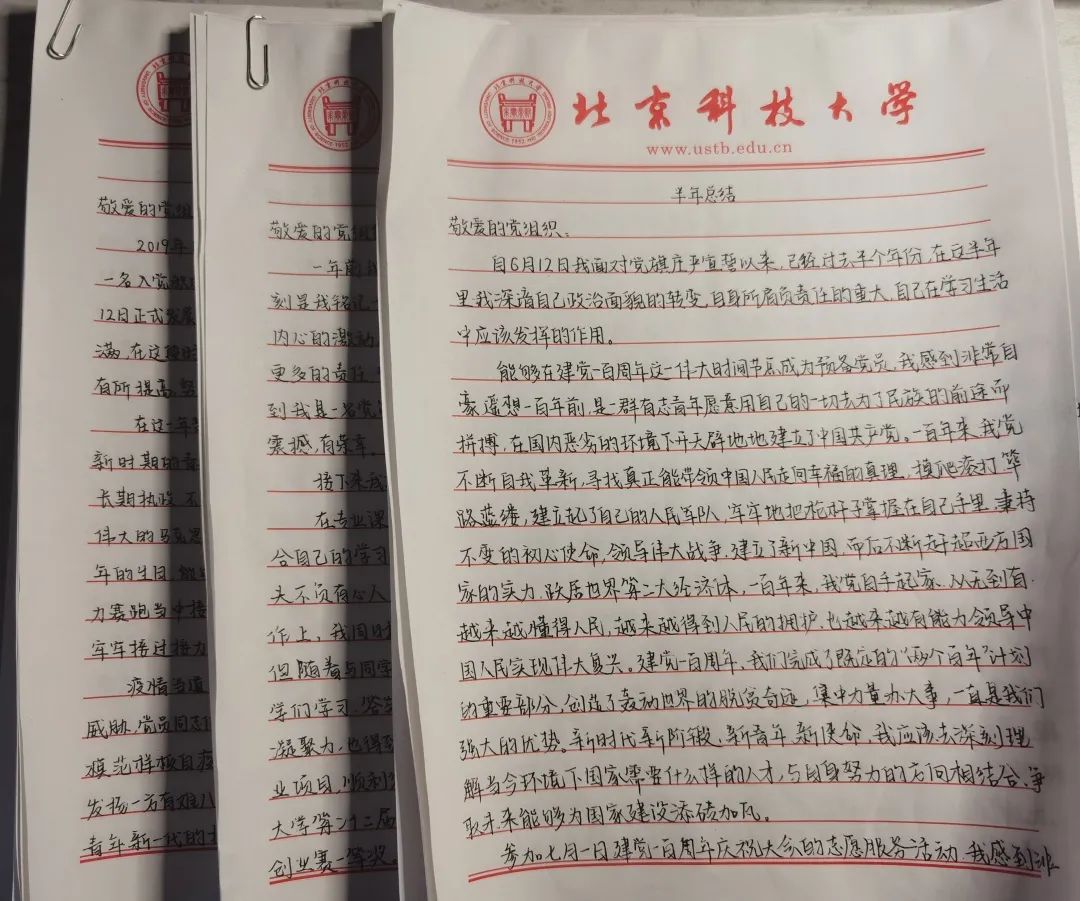 敬爱的党组
2019年
一名入党积
12日正式发展
满,在这
有所提高,努
在这一年
新时期的青
长期执政,不
伟大的马克思
年的生日,能
力赛跑当中接
牢牢接过接力
疫情当道
威胁,党员同志们
模范样板自疫
发扬一方有难八
青年新一代的
敬爱的党组
一年前我
刻是我铭记一
内心的激动
更多的责任
到我是一名党
震撼,有荣幸。
接下来我
在专业课
合自己的学习
夫不负有心人
作上,我同时
但随着与同学
学们学习、答
凝聚力,也得到
业项目,顺利
大学第二十二届
创业赛一等奖。
北京科技大学
www.ustb.edu.cn
半年总结
敬爱的党组织:
自6月12日我面对党旗庄严宣誓以来,已经过去半个年份,在这半年
里我深清自己政治面貌的转变,自身所肩负责任的重大,自己在学习生活
中应该发挥的作用。
能够在建党一百周年这一伟大时间节点成为预备党员,我感到非常自
豪,遥想一百年前,是一群有志青年愿意用自己的一切去为了民族的前途而
拼搏,在国内恶劣的环境下开天辟地地建立了中国共产党。一百年来,我党
不断自我革新,寻找真正能带领中国人民走向幸福的真理,摸爬滚打,筚
路蓝缕,建立起了自己的人民军队,牢牢地把枪杆子掌握在自己手里,秉持
不变的初心使命,领导伟大战争,建立了新中国,而后不断赶超西方国
家的实力,跃居世界第二大经济体,一百年来,我党白手起家,从无到有,
越来越懂得人民,越来越得到人民的拥护,也越来越有能力领导中
国人民实现伟大复兴。建党一百周年,我们完成了既定的"两个百年"计划
的重要部分,创造了轰动世界的脱贫奇迹,集中力量办大事,一直是我们
强大的优势。新时代新阶段,新青年新使命,我应该去深刻理
解当今环境下国家需要什么样的人才,与自身努力的方向相结合,争
取未来能够为国家建设添砖加瓦。
参加七月一日建党一百周年庆祝大会的志愿服务活动,我感到非